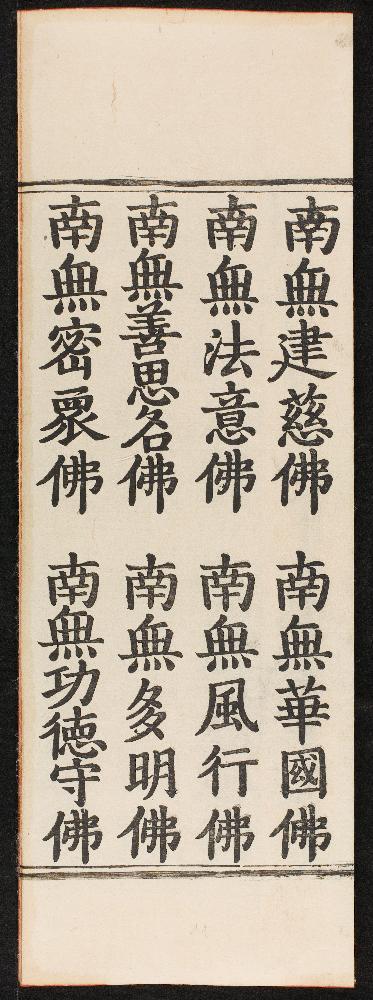 南無建慈佛
南無華國佛
南無法意佛
南無風行佛
南無善思名佛
南無多明佛
南無密眾佛
南無功德守佛